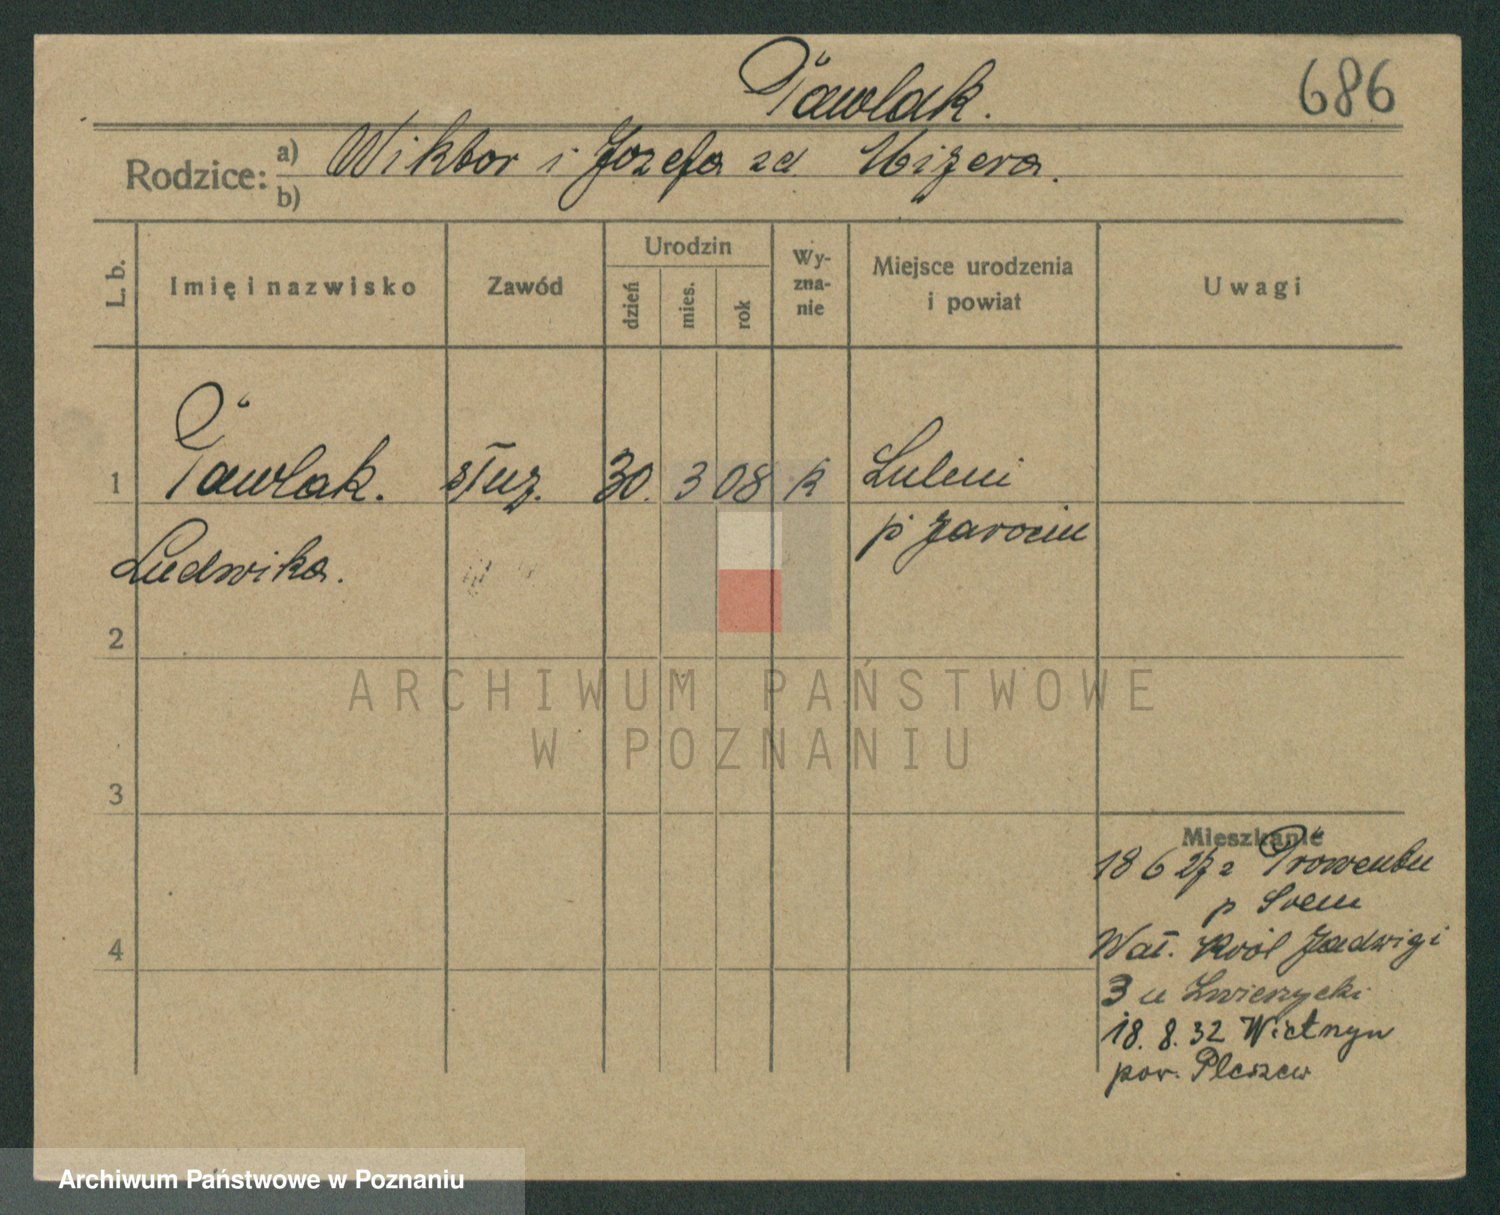 Pawlak.
686
Rodzice: a) Wiktor i Jozefa zd Mizera.
b)
L. b.
Imię i nazwisko
Zawód
Urodzin
dzień
mies.
rok
Wy-
zna-
nie
Miejsce urodzenia
i powiat
Uwagi
1 Pawlak. służ. 30. 3 08 K
p Jarocin
Ludwika.
2
ARCHIWUM PAŃSTWOWE
W POZNANIU
3
Mieszkanie
18 6 27 z
p Srem
Wał. Król Jadwigi
3 u
18. 8. 32
pow. Pleszew
4
Archiwum Państwowe w Poznaniu